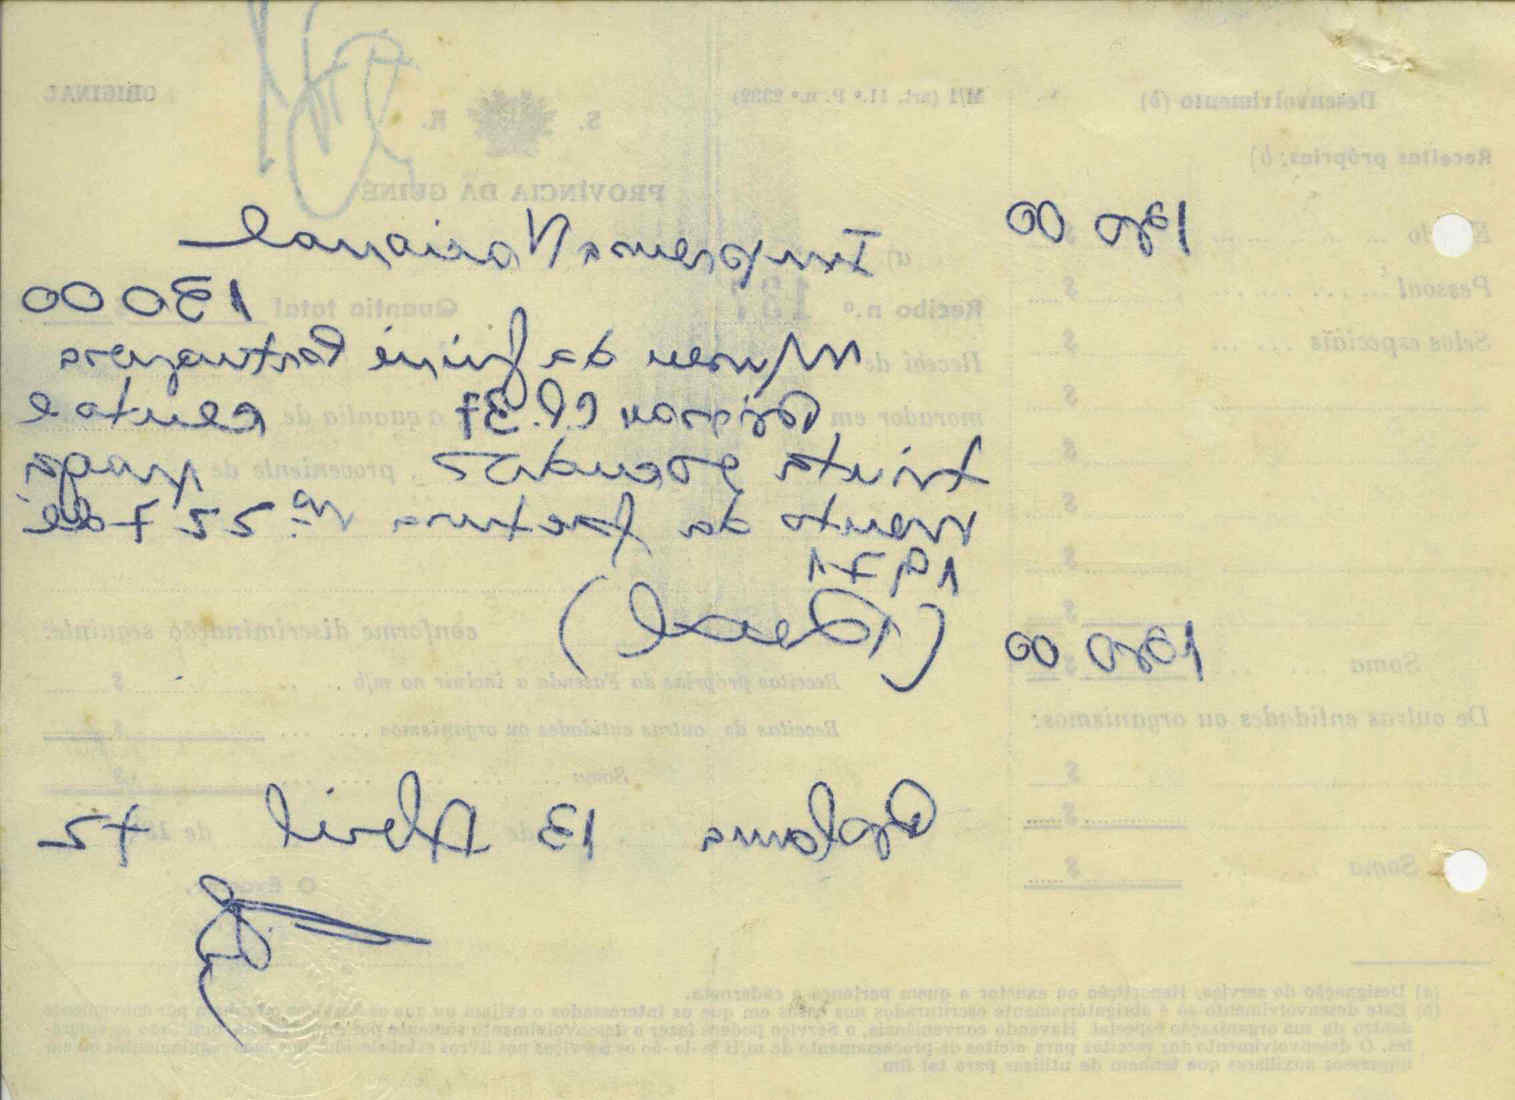 Desenvolvimento (b)
M/1 (art. 11.º P. n.º 2232)
ORIGINAL
S. R.
Receitas próprias: b)
PROVÍNCIA DA GUINÉ
130 00
a) Imprensa Nacional
Pessoal $
Recibo n.º 137 Quantia total 130 00
Selos especiais $
Recebi de Museu da Guiné Portuguesa
morador em Bissau C.P. 37 a quantia de cento e
trinta escudos proveniente de paga
mento da factura nº 55 7 de
1971
(Geral)
conforme discriminação seguinte:
Soma 130 00
Receitas próprias da Fazenda a incluir no m/b $
De outras entidades ou organismos:
Receitas de outras entidades ou organismos $
Soma $
Bolama 13 de Abril de 1972
Soma $
(a) Designação do serviço, Repartição ou exactor a quem pertence a caderneta.
(b) Este desenvolvimento só é obrigatoriamente escriturado nos casos em que os interessados o exijam ou que os
dentro da sua organização especial. Havendo conveniência, o Serviço poderá fazer o desenvolvimento somente
tes. O desenvolvimento das receitas para efeitos de processamento do m/b
impressos auxiliares que tenham de utilizar para tal fim.